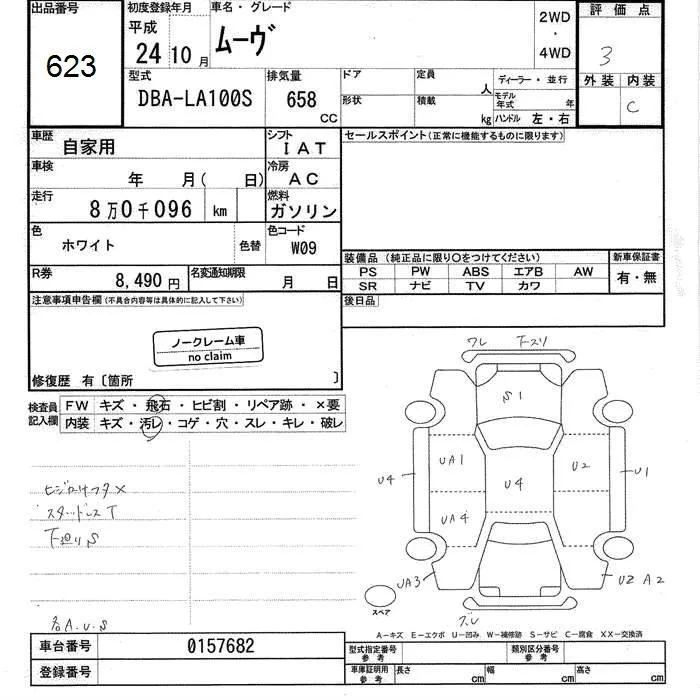 出品番号
623
初度登録年月
平成
24 10 月
車名・グレード
ムーヴ
2WD
・
4WD
評価点
3
外装 内装
C
型式
DBA-LA100S
排気量
658
CC
ドア
定員
人
形状
積載
kg
ディーラー・並行
モデル年式 年
ハンドル 左・右
車歴
自家用
シフト
IAT
車検
年 月( 日)
冷房
AC
走行
8万0千096 km
燃料
ガソリン
色
ホワイト
色替
色コード
W09
R券
8,490 円
名変通知期限
月 日
セールスポイント(正常に機能するものに限ります)
装備品 (純正品に限り○をつけてください)
PS PW ABS エアB AW
SR ナビ TV カワ
新車保証書
有・無
後日品
注意事項申告欄(不具合内容等は具体的に記入して下さい)
ノークレーム車
no claim
修復歴 有〔箇所 〕
検査員
記入欄
FW キズ・飛石・ヒビ割・リペア跡・×要
内装 キズ・汚レ・コゲ・穴・スレ・キレ・破レ
スタッドレスT
下廻りS
各A.U.S
ワレ 下スリ
S1
UA1
U2
U4
U4
U1
UA4
UA3
U2 A2
ズレ
スペア
A－キズ E－エクボ U－凹み W－補修跡 S－サビ C－腐食 XX－交換済
車台番号
0157682
登録番号
型式指定番号
参考
類別区分番号
参考
車庫証明用
参考
長さ cm 幅 cm 高さ cm